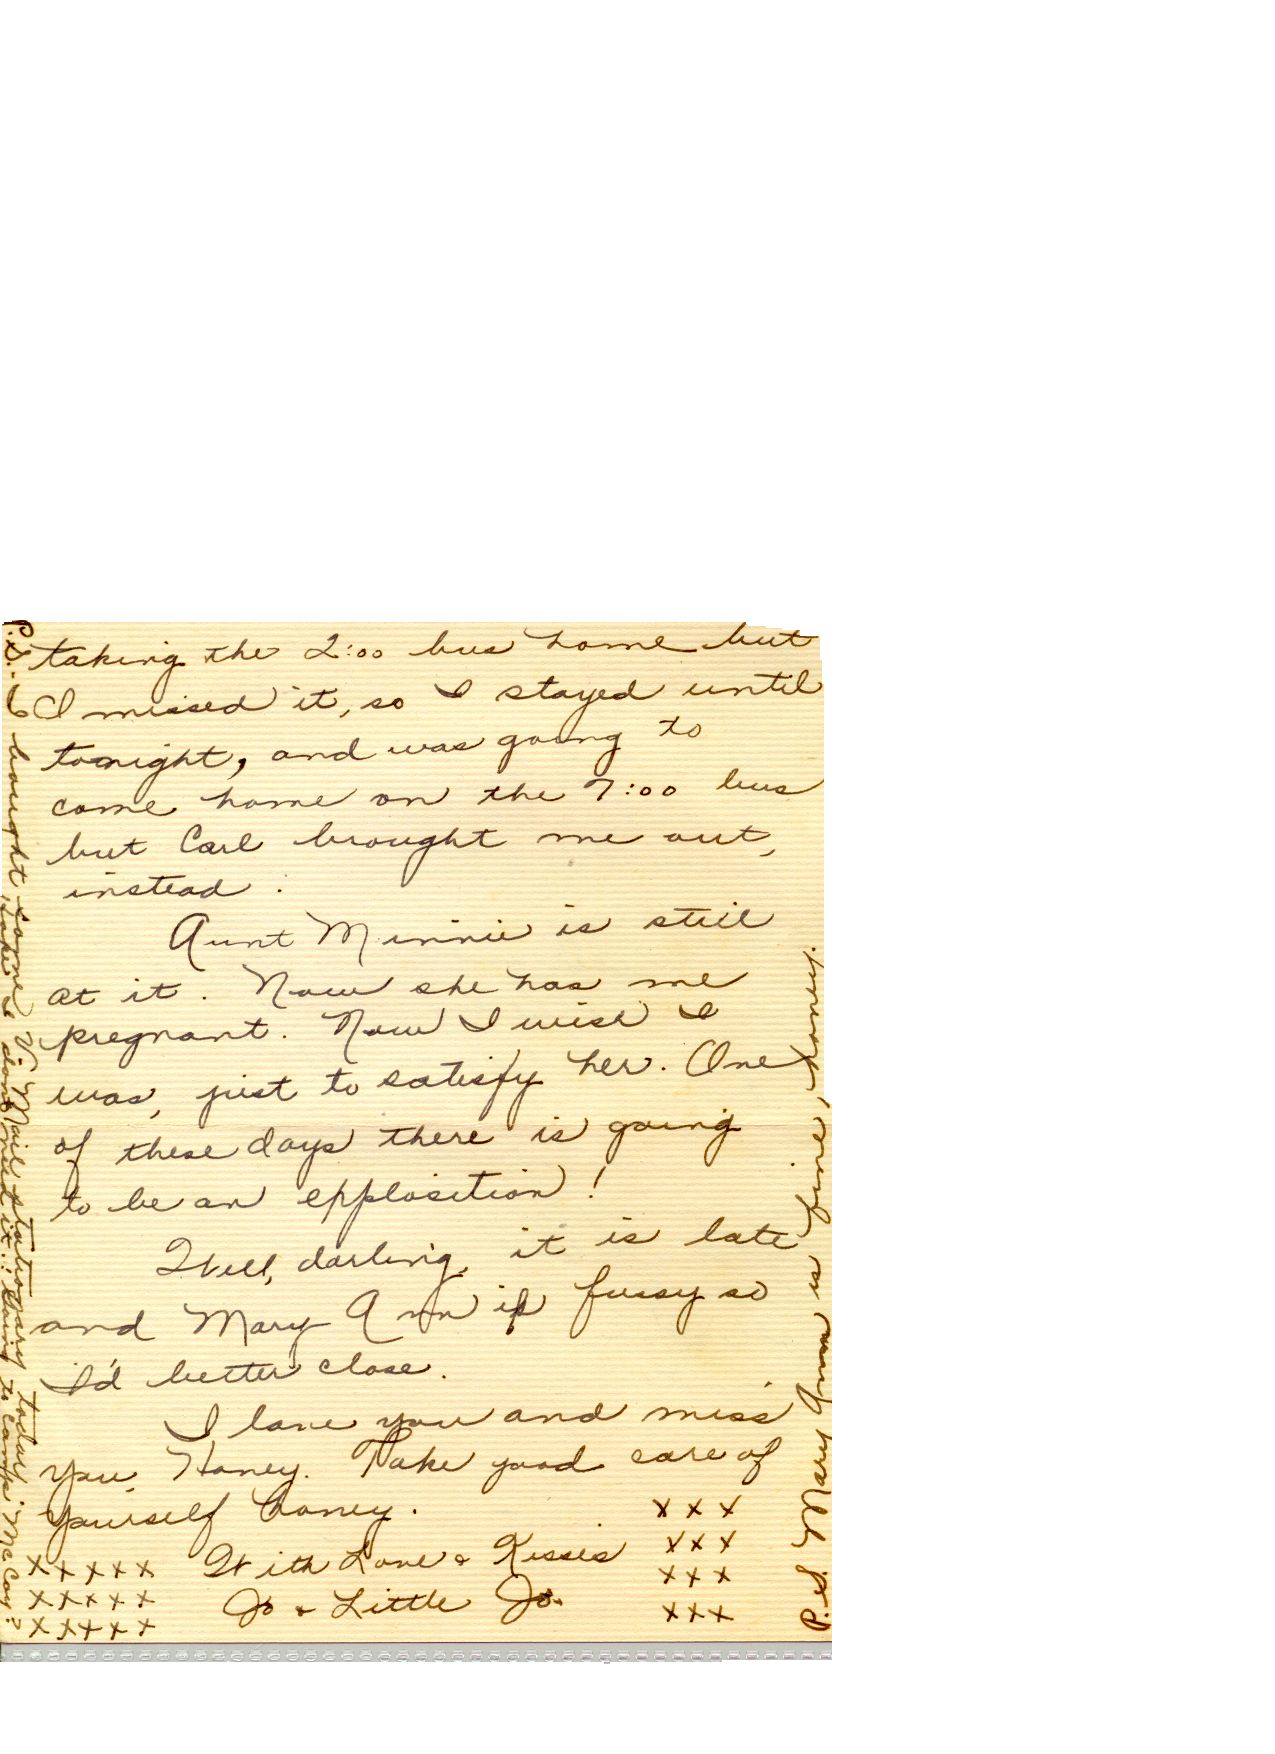 taking the 2:00 bus home but
I missed it, so I stayed until
tonight, and was going to
come home on the 7:00 bus
but Carl brought me out,
instead.
Aunt Minnie is still
at it. Now she has me
pregnant. Now I wish I
was, just to satisfy her. One
of these days there is going
to be an epplosition!
Well, darling, it is late
and Mary Ann is fussy so
I'd better close.
I love you and miss
you, Honey. Take good care of
yourself honey.
With Love & Kisses
Jo & Little Jo.
x x x x x
x x x x x
x x x x x
x x x
x x x
x x x
x x x
P.S. Mary Ann is fine, honey.
P.S. - I bought some V-Mail stationary today
I don't need it. Going to Camp McCoy?